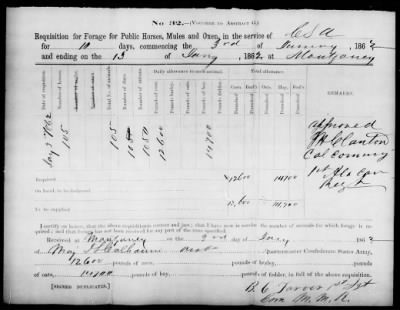 No. 32.—(Voucher to Abstract G)
Requisition for Forage for Public Horses, Mules and Oxen, in the service of C S A
for 10 days, commencing the 3rd of January 1862
and ending on the 13 of Jany 1862, at Montgomery
Date of requisition. Number of horses. Number of mules. Number of oxen. Total number of animals. Number of days. Number of rations. Daily allowance to each animal. Total allowance. REMARKS.
Pounds of corn. Pounds barley. Pounds of oats. Pounds of hay. Pounds fodder. Corn. Barl'y. Oats. Hay. Fod'r.
Jany 3 1862 105 105 10 1050 12600 14700
Approved
J H Clanton
Col Comdg
1st Ala Cav
Regt
Required 12600 14700
On hand, to be deducted
To be supplied 12,600 14,700
I certify on honor, that the above requisition is correct and just; that I have now in service the number of animals for which forage is required; and that forage has not been received for any part of the time specified.
Received at Montgomery on the 3rd of Jany 1862
of Maj J L Calhoun Quartermaster Confederate States Army,
12600 pounds of corn, pounds of barley,
of oats, 14700 pounds of hay, pounds of fodder, in full of the above requisition.
[SIGNED DUPLICATES.]
B. C. Tarver 1st Sgt
Com M. M. R.